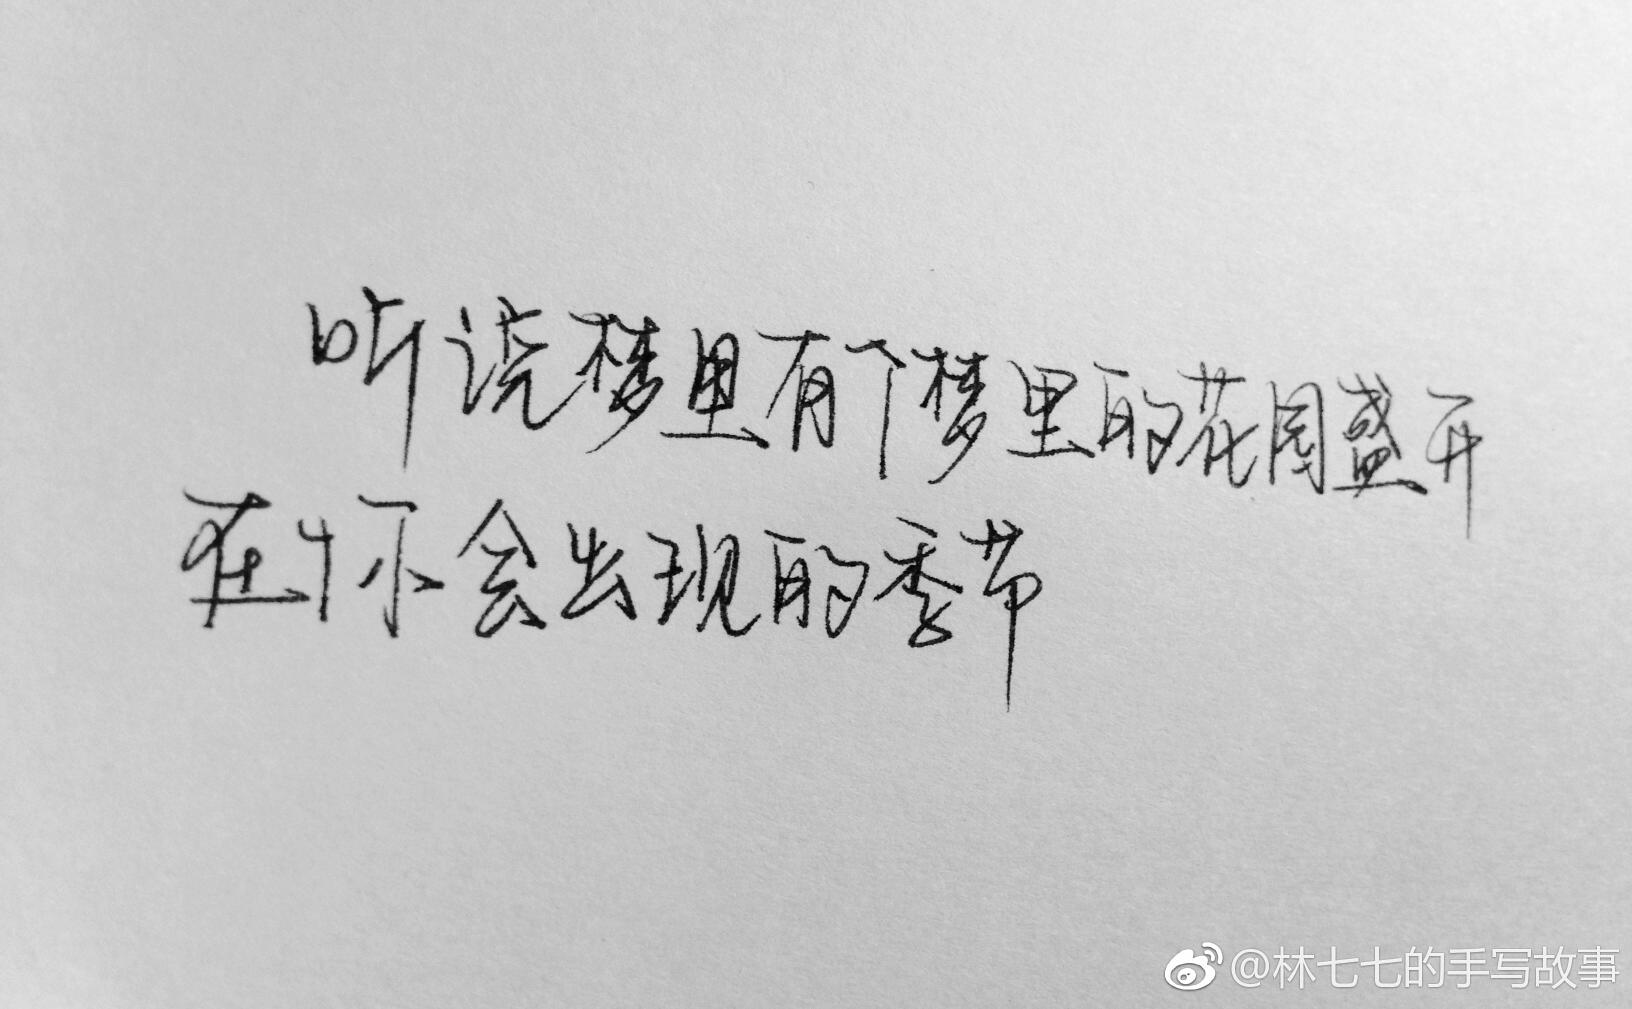 听说梦里有个梦里的花园盛开
在怀会出现的季节
@林七七的手写故事